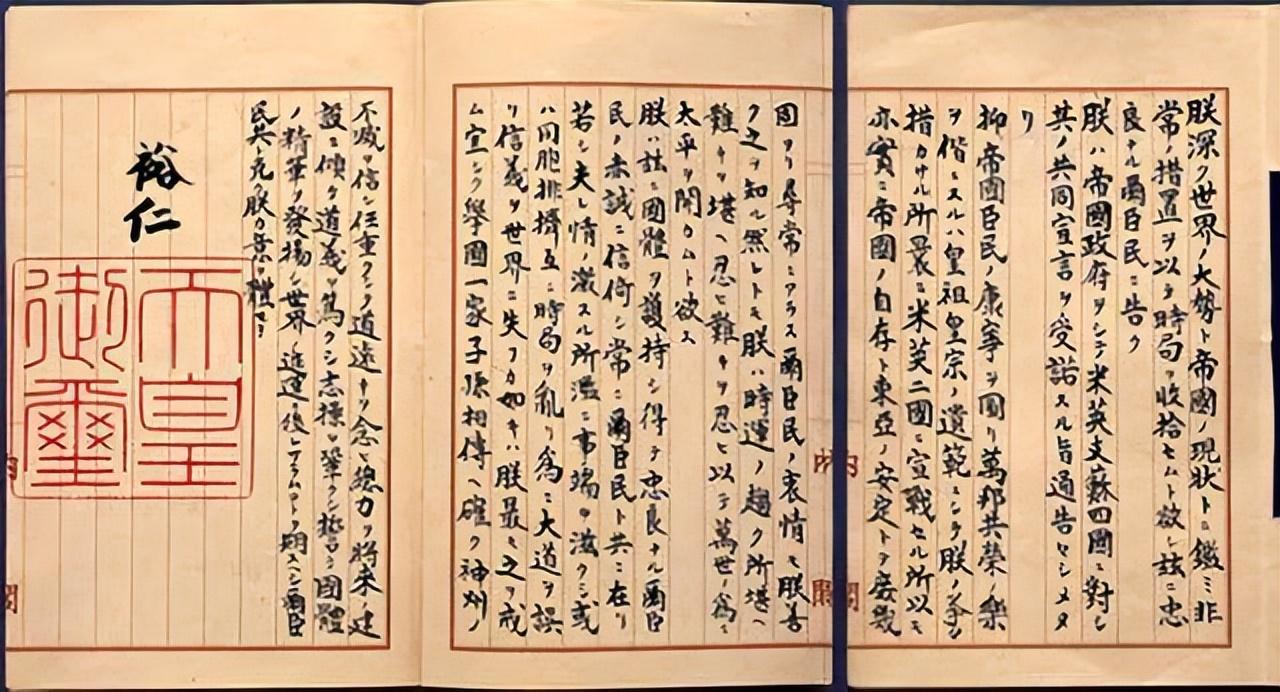 朕深ク世界ノ大勢ト帝國ノ現狀トニ鑑ミ非
常ノ措置ヲ以テ時局ヲ收拾セムト欲シ茲ニ忠
良ナル爾臣民ニ告ク
朕ハ帝國政府ヲシテ米英支蘇四國ニ對シ
其ノ共同宣言ヲ受諾スル旨通告セシメタ
リ
抑〻帝國臣民ノ康寧ヲ圖リ萬邦共榮ノ樂
ヲ偕ニスルハ皇祖皇宗ノ遺範ニシテ朕ノ拳〻
措カサル所曩ニ米英二國ニ宣戰セル所以モ
亦實ニ帝國ノ自存ト東亞ノ安定トヲ庶幾
固ヨリ尋常ニアラス爾臣民ノ衷情モ朕善
ク之ヲ知ル然レトモ朕ハ時運ノ趨ク所堪ヘ
難キヲ堪ヘ忍ヒ難キヲ忍ヒ以テ萬世ノ爲ニ
太平ヲ開カムト欲ス
朕ハ茲ニ國體ヲ護持シ得テ忠良ナル爾臣
民ノ赤誠ニ信倚シ常ニ爾臣民ト共ニ在リ
若シ夫レ情ノ激スル所濫ニ事端ヲ滋クシ或
ハ同胞排擠互ニ時局ヲ亂リ爲ニ大道ヲ誤
リ信義ヲ世界ニ失フカ如キハ朕最モ之ヲ戒
ム宜シク擧國一家子孫相傳ヘ確ク神州ノ
不滅ヲ信シ任重クシテ道遠キヲ念ヒ總力ヲ將來ノ建
設ニ傾ケ道義ヲ篤クシ志操ヲ鞏クシ誓テ國體
ノ精華ヲ發揚シ世界ノ進運ニ後レサラムコトヲ期スヘシ爾臣
民其レ克ク朕カ意ヲ體セヨ
裕仁
天皇
御璽